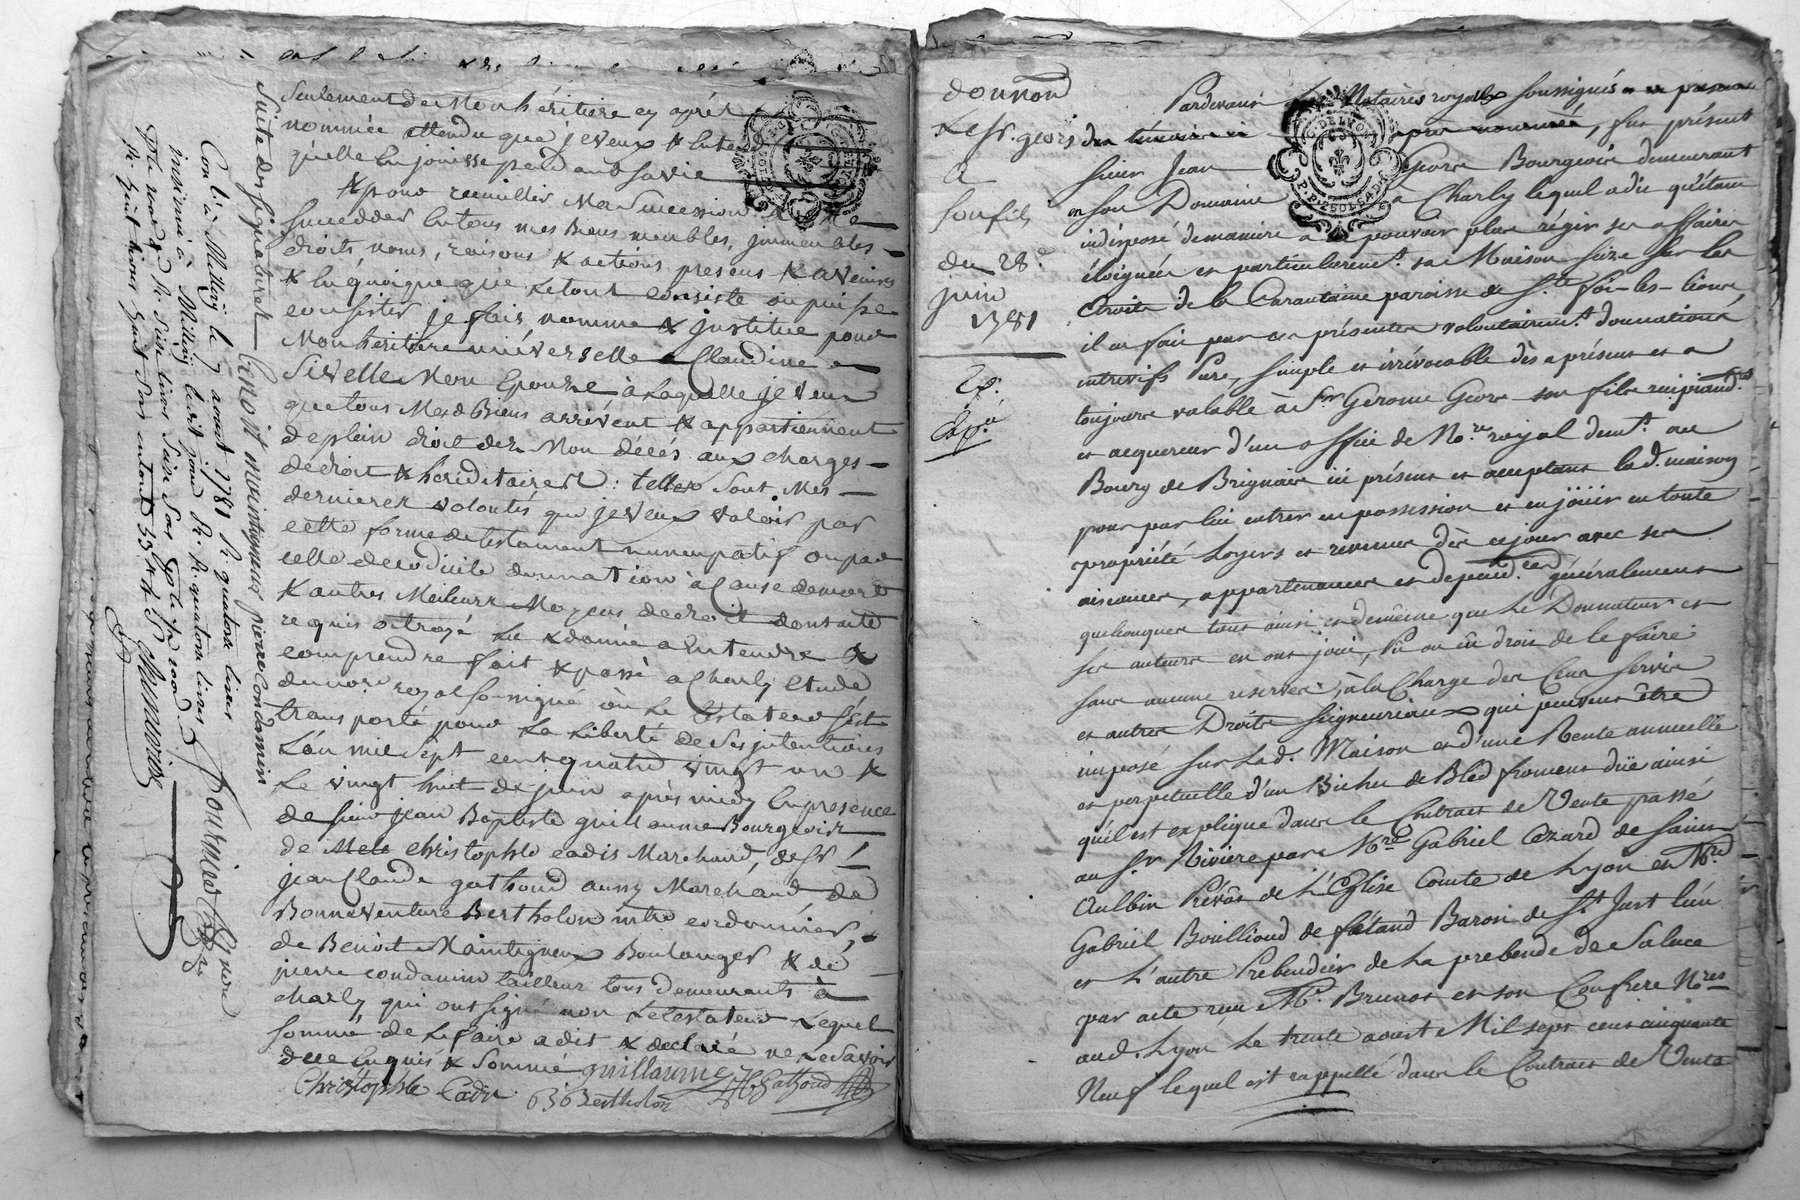 Seulement de Mon héritiere cy après
nommée attendu que je veux & entend
qu'elle En jouisse pendant sa vie
& pour recueillir Ma Succession &
succedder En tous mes Biens meubles, jmmeubles
droits, noms, raisons & actions presens & avenirs
& En quoique que Le tout consiste ou puisse
consister je fais, nomme & jnstitue pour
Mon héritiere universelle Claudine
Sivelle Mon Epouse à Laquelle je veux
que tous Mesd Biens arrivent & appartiennent
de plein droit dez Mon décés aux charges
de droit & héréditaires : telles Sont Mes
dernieres volontés que je veux valoir par
cette forme de testament nuncupatif ou par
celle de codicile donnation à Cause de mort
& autres Meilleurs Moyens de droit dont acte
requis octroyé Lu & donné a Entendre &
comprendre fait & passé a Charly Etude
du no.re royal Soussigné où Le testateur s'est
transporté pour La Liberté de Ses jntentions
L'an mil Sept cent quatre vingt un &
Le vingt huit de juin après midy En presence
de Sieur jean Baptiste guillaume Bourgeois
de Me Christophle cadis Marchand, de Sr
jean Claude gathoud aussy Marchand de
Bonneventure Bertholon mtre cordonnier,
de Benoit Maintigneux Boulanger & de
pierre condamin tailleur tous demeurants à
charly qui ont signé non Le testateur Lequel
sommé de Le faire a dit & declaré ne Le Savoir
de ce Enquis & Sommé guillaume J C Gathoud
Christophle Cadis B Bertholon
Suite des signatures Benoit mointigneux pierre Condamin
Con.lé à Millery le 9 aoust 1781 R. quatorze livres
insinué à Millery ledit jour R. quatorze livres
fournier
donnaon
Le Sr. geors
A
son fils
du 28.e
juin
1781
Exp.
Pardevant Les Notaires royal soussignés
fut présent
sieur Jean Geors Bourgeois demeurant
en son Domaine a Charly lequel a dit qu'étant
indisposé de maniere a ne pouvoir plus régir ses affaires
éloignées et particulierem.t sa Maison size sur les
Etroits de la Carantaine paroisse de S.te foi-les-lions
il a fait par ces présentes volontairem.t donnation
entrevifs Pure, simple et irrévocable dès a présent et a
toujours valable à Sr. Gerome Geors son fils
et acquereur d'un office de No.re royal dem.t au
Bourg de Brignais ici présent et acceptant lad. maison
pour par lui entrer en possession et en joüir en toute
propriété Loyers et revenus dès ce jour avec ses
aisances, appartenances et depend.ces généralement
quelconques tout ainsi et de même que Le Donnateur et
ses auteurs en ont joui, Pu ou dû droit de le faire
sans aucune reserve, à la Charge des Cens Servis
et autres Droits seigneuriaux qui peuvent être
imposé sur Lad. Maison et d'une Rente annuelle
et perpetuelle d'un Bichet de Bled froment düe ainsi
qu'il est expliqué dans le Contract de Vente passé
au Sr Riviere par Mre Gabriel Cezard de Saint
Aulbin Prévôt de L'Eglise Comte de Lyon et Mre
Gabriel Bouilliond de Baron de St Just l'un
et L'autre Prebendier de La prebende de Saluce
par acte reçu Me. Brunot et son Confrere Nres
aud. Lyon Le trente aoust Mil sept cens cinquante
Neuf lequel est rappellé dans le Contract de Vente